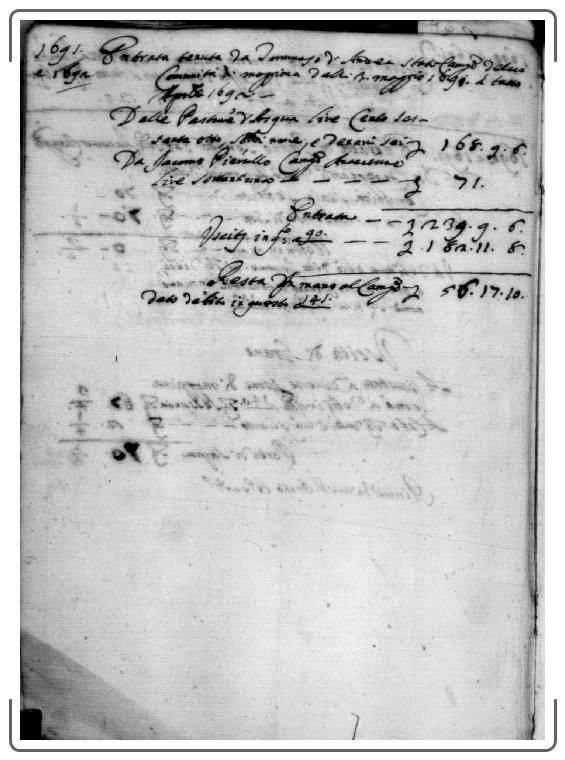 1691. Entrata tenuta da Tommaso d'Andrea stato Camgo della
e 1692 Comunità di magiona dalli 3. maggio 1691. à tutto
Aprile 1692. —
Dalle Pasture d'Acqua lire Cento ses-
santa otto soldi nove, e denari sei £ 168. 9. 6
Da Jacomo Pierullo Camgo
lire settantuna — — — £ 71.
Entrata — — £ 239. 9. 6.
Uscita in qto a 90. — — £ 182. 11. 8.
Resta in mano al Camgo £ 56. 17. 10.
dato debito in questo a 141.